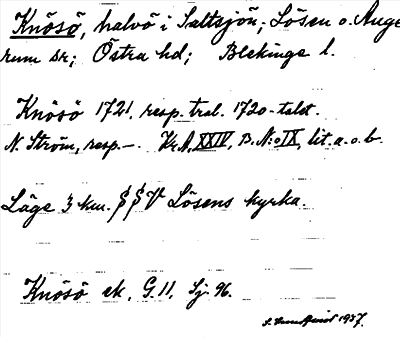 Knösö, halvö i Saltsjön; Lösen o. Auge
rum sn; Östra hd; Blekinge l.
Knösö 1721, resp. tral. 1720-talet.
N. Ström, resp. –. Kr. A, XXIV, B. N:o IX, lit. a. o. b.
Läge 3 km. SSV Lösens kyrka.
Knösö ek. G. 11. Sj. 96.
1937.